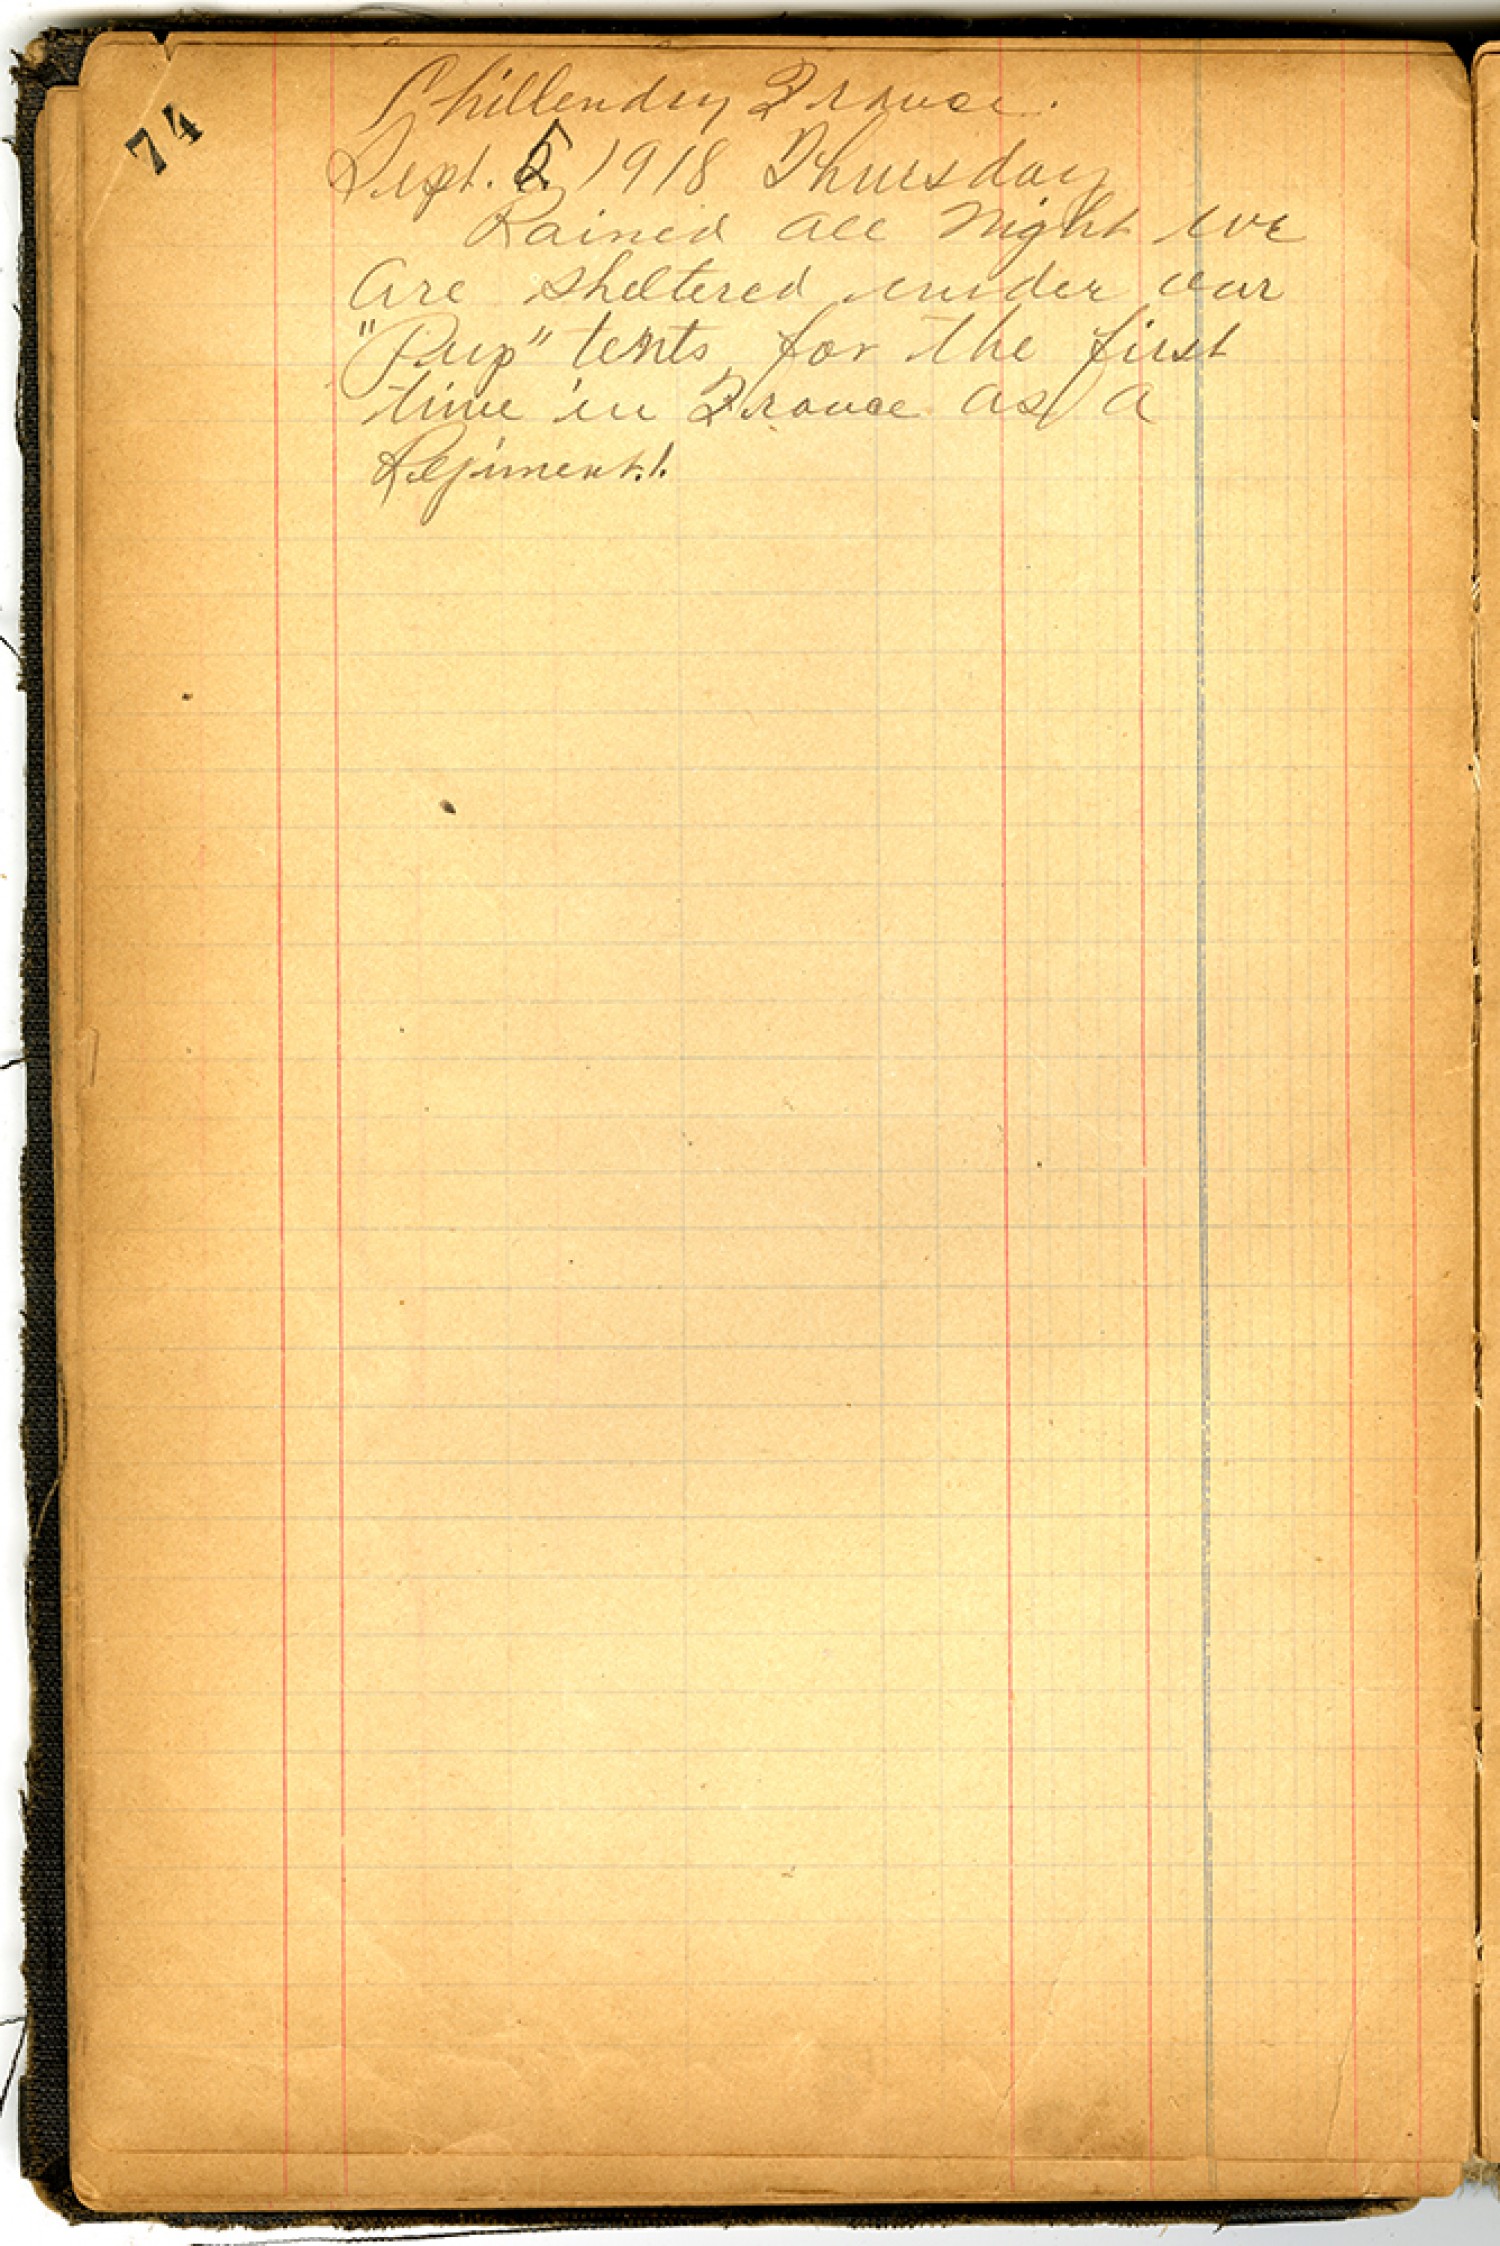 74
Chillendry France.
Sept. 5 1918 Thursday
Rained all Night we
are sheltered under our
"Pup" tents for the first
time in France as a
Regiment.!